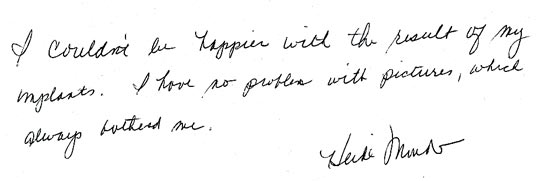 I couldn't be happier with the result of my
implants. I have no problem with pictures, which
always bothered me.
Heidi